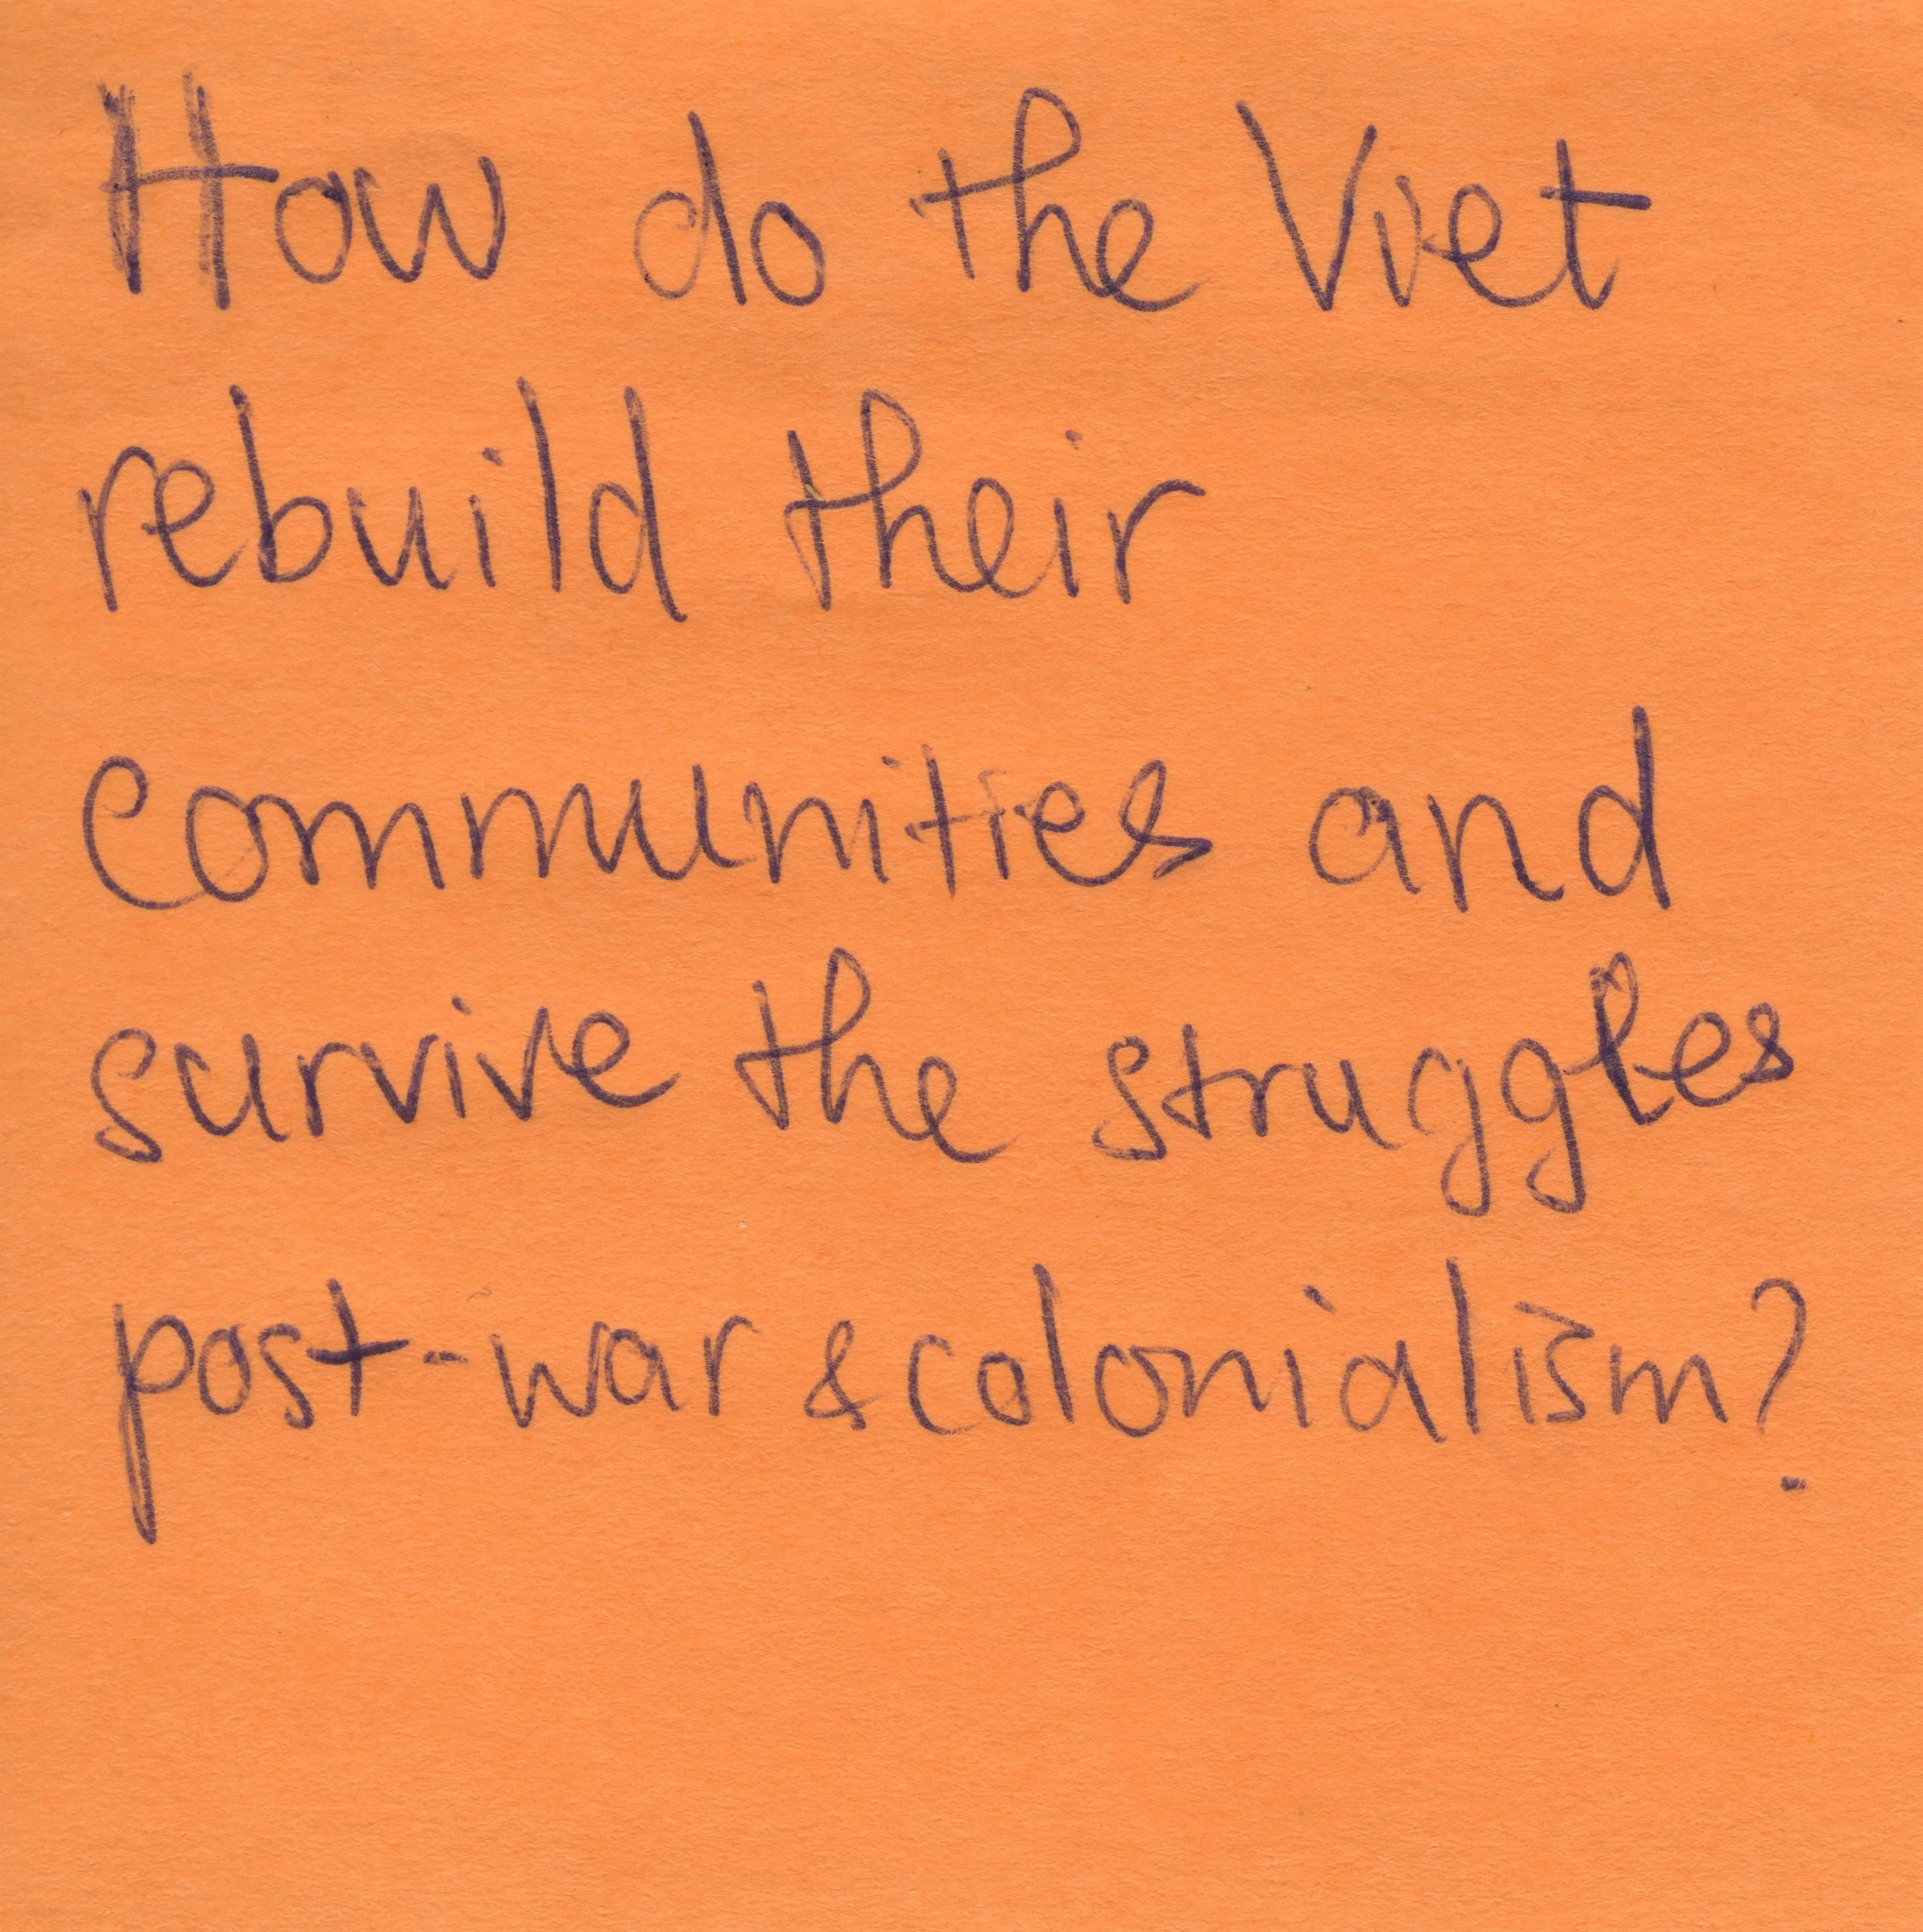 How do the Viet
rebuild their
communities and
survive the struggles
post-war & colonialism?